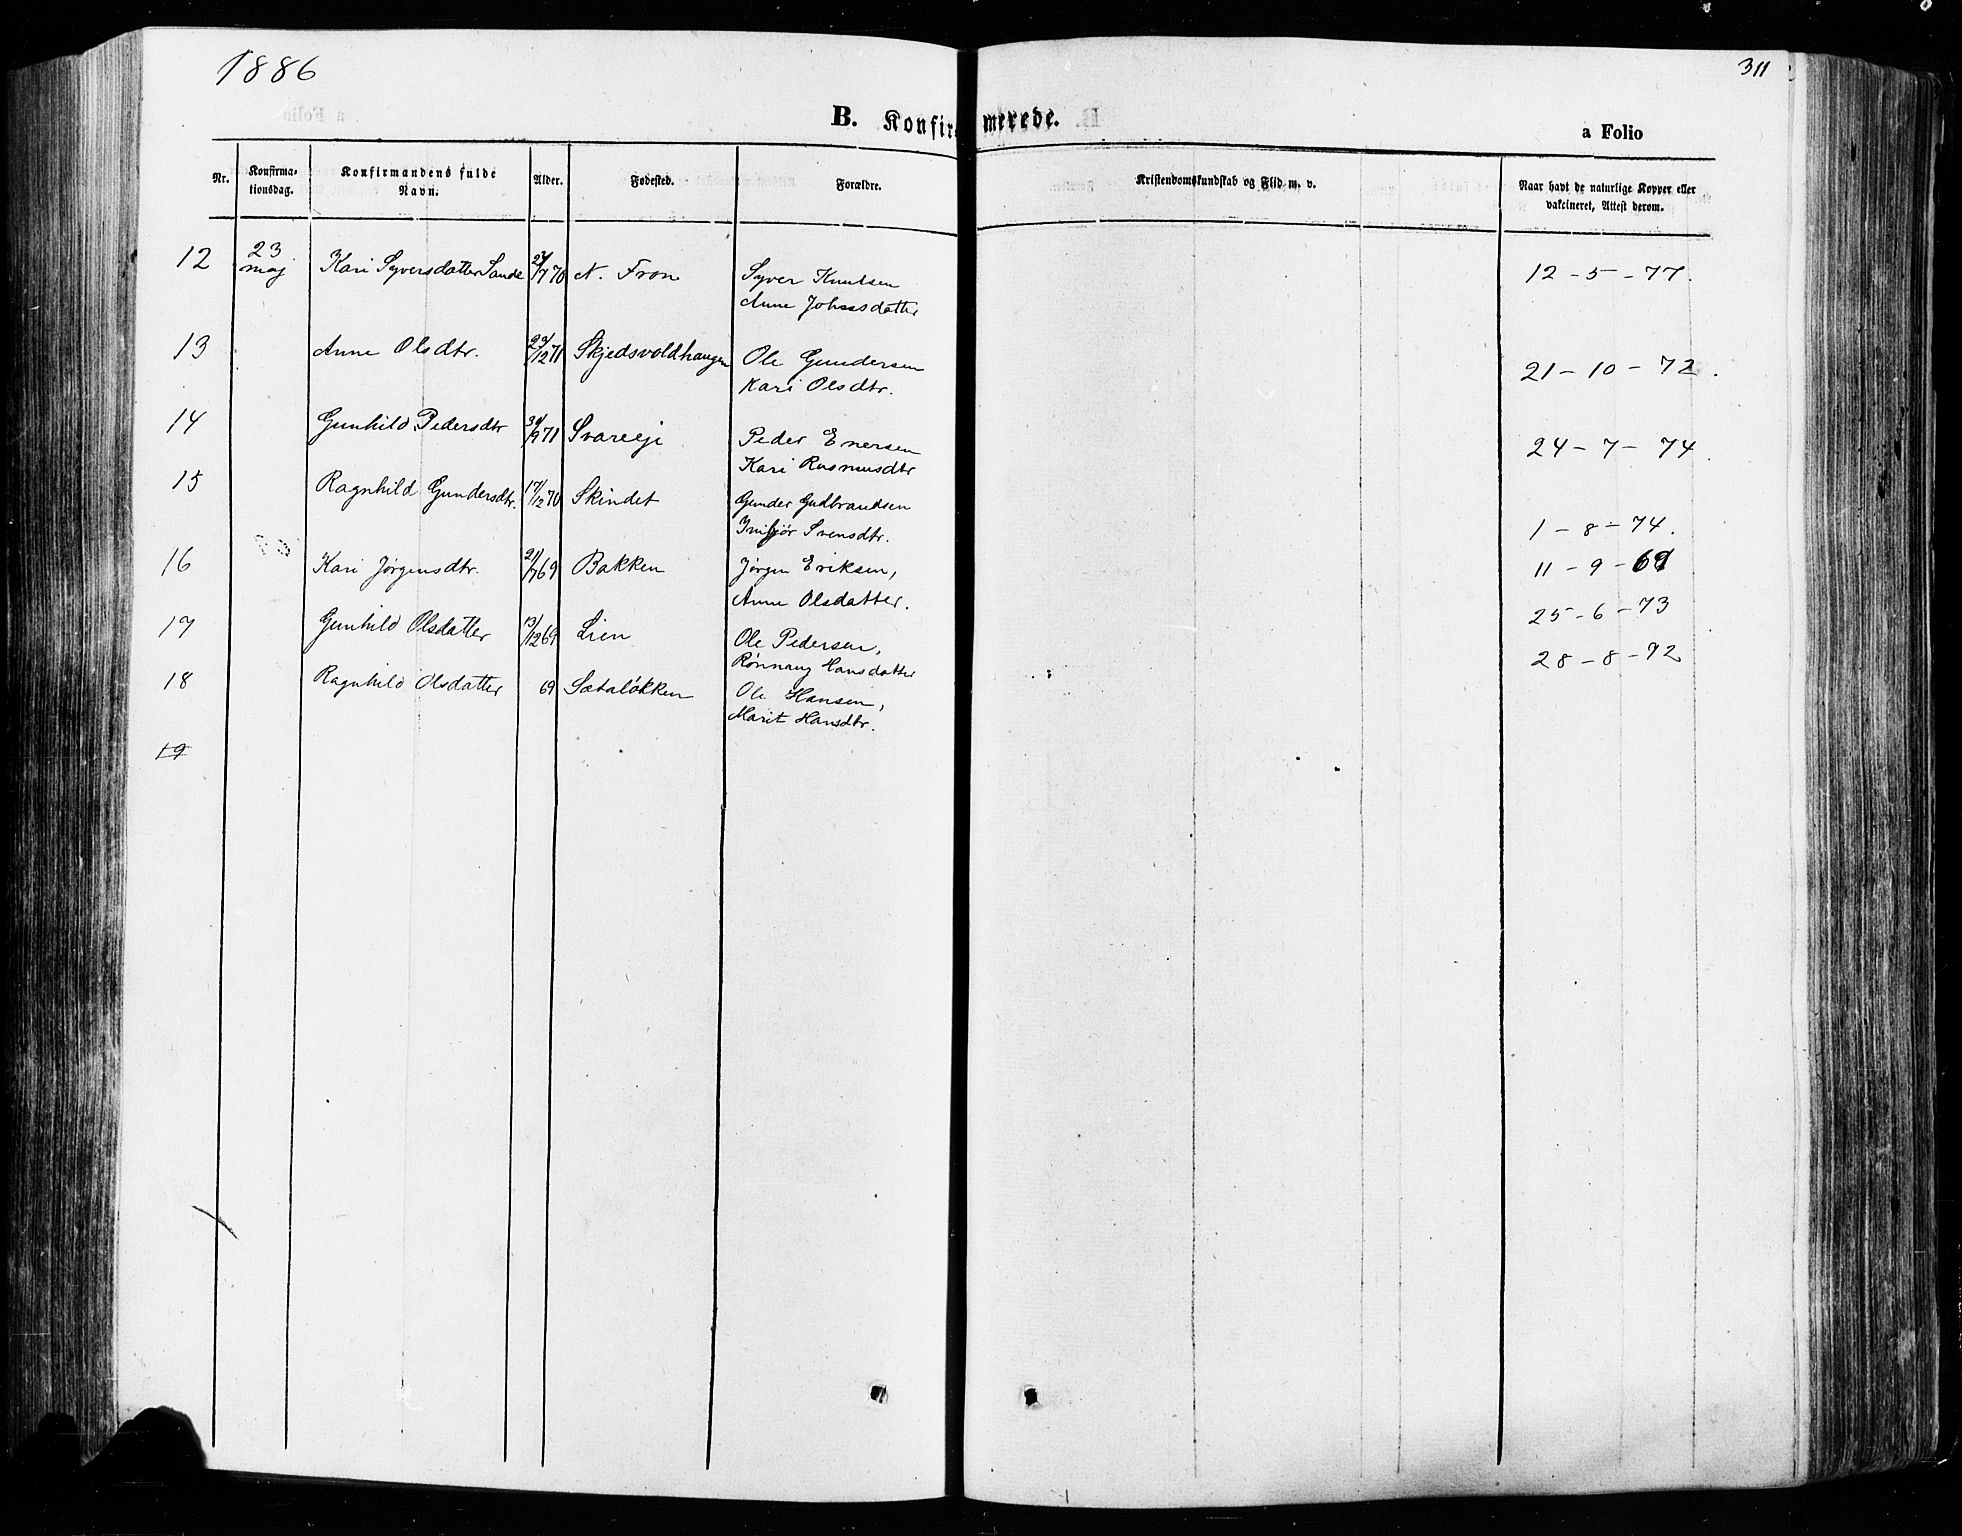 1886
311
B. Konfirmerede.
a Folio
Nr.
Konfirma-
tionsdag.
Konfirmandens fulde
Navn.
Alder.
Fødested.
Forældre.
Kristendomskundskab og Flid m. v.
Naar havt de naturlige Kopper eller
vakcineret, Attest derom.
12 23 maj Kari Syversdatter Sande 27/7 70 N. Fron Syver Knutsen 12-5-77.
Anne Johnsdatter
13 Anne Olsdtr. 12 71 Skjedsvoldhaugen Ole Gundersen 21-10-72.
Kari Olsdtr.
14 Gunhild Pedersdtr 30/9 71 Svareeje Peder Enersen 24-7-74.
Kari Rasmusdtr
15 Ragnhild Gundersdtr. 17/12 70 Skindet Gunder Gudbrandsen
Svensdtr. 1-8-74.
16 Kari Jørgensdtr. 21/7 69 Bakken Jørgen Eriksen, 11-9-69
Anne Olsdatter.
17 Gunhild Olsdatter 13/12 69 Lien Ole Pedersen, 25-6-73
Rønnaug Hansdatter
18 Ragnhild Olsdatter 69 Sætaløkken Ole Hansen, 28-8-72
Marit Hansdtr.
19